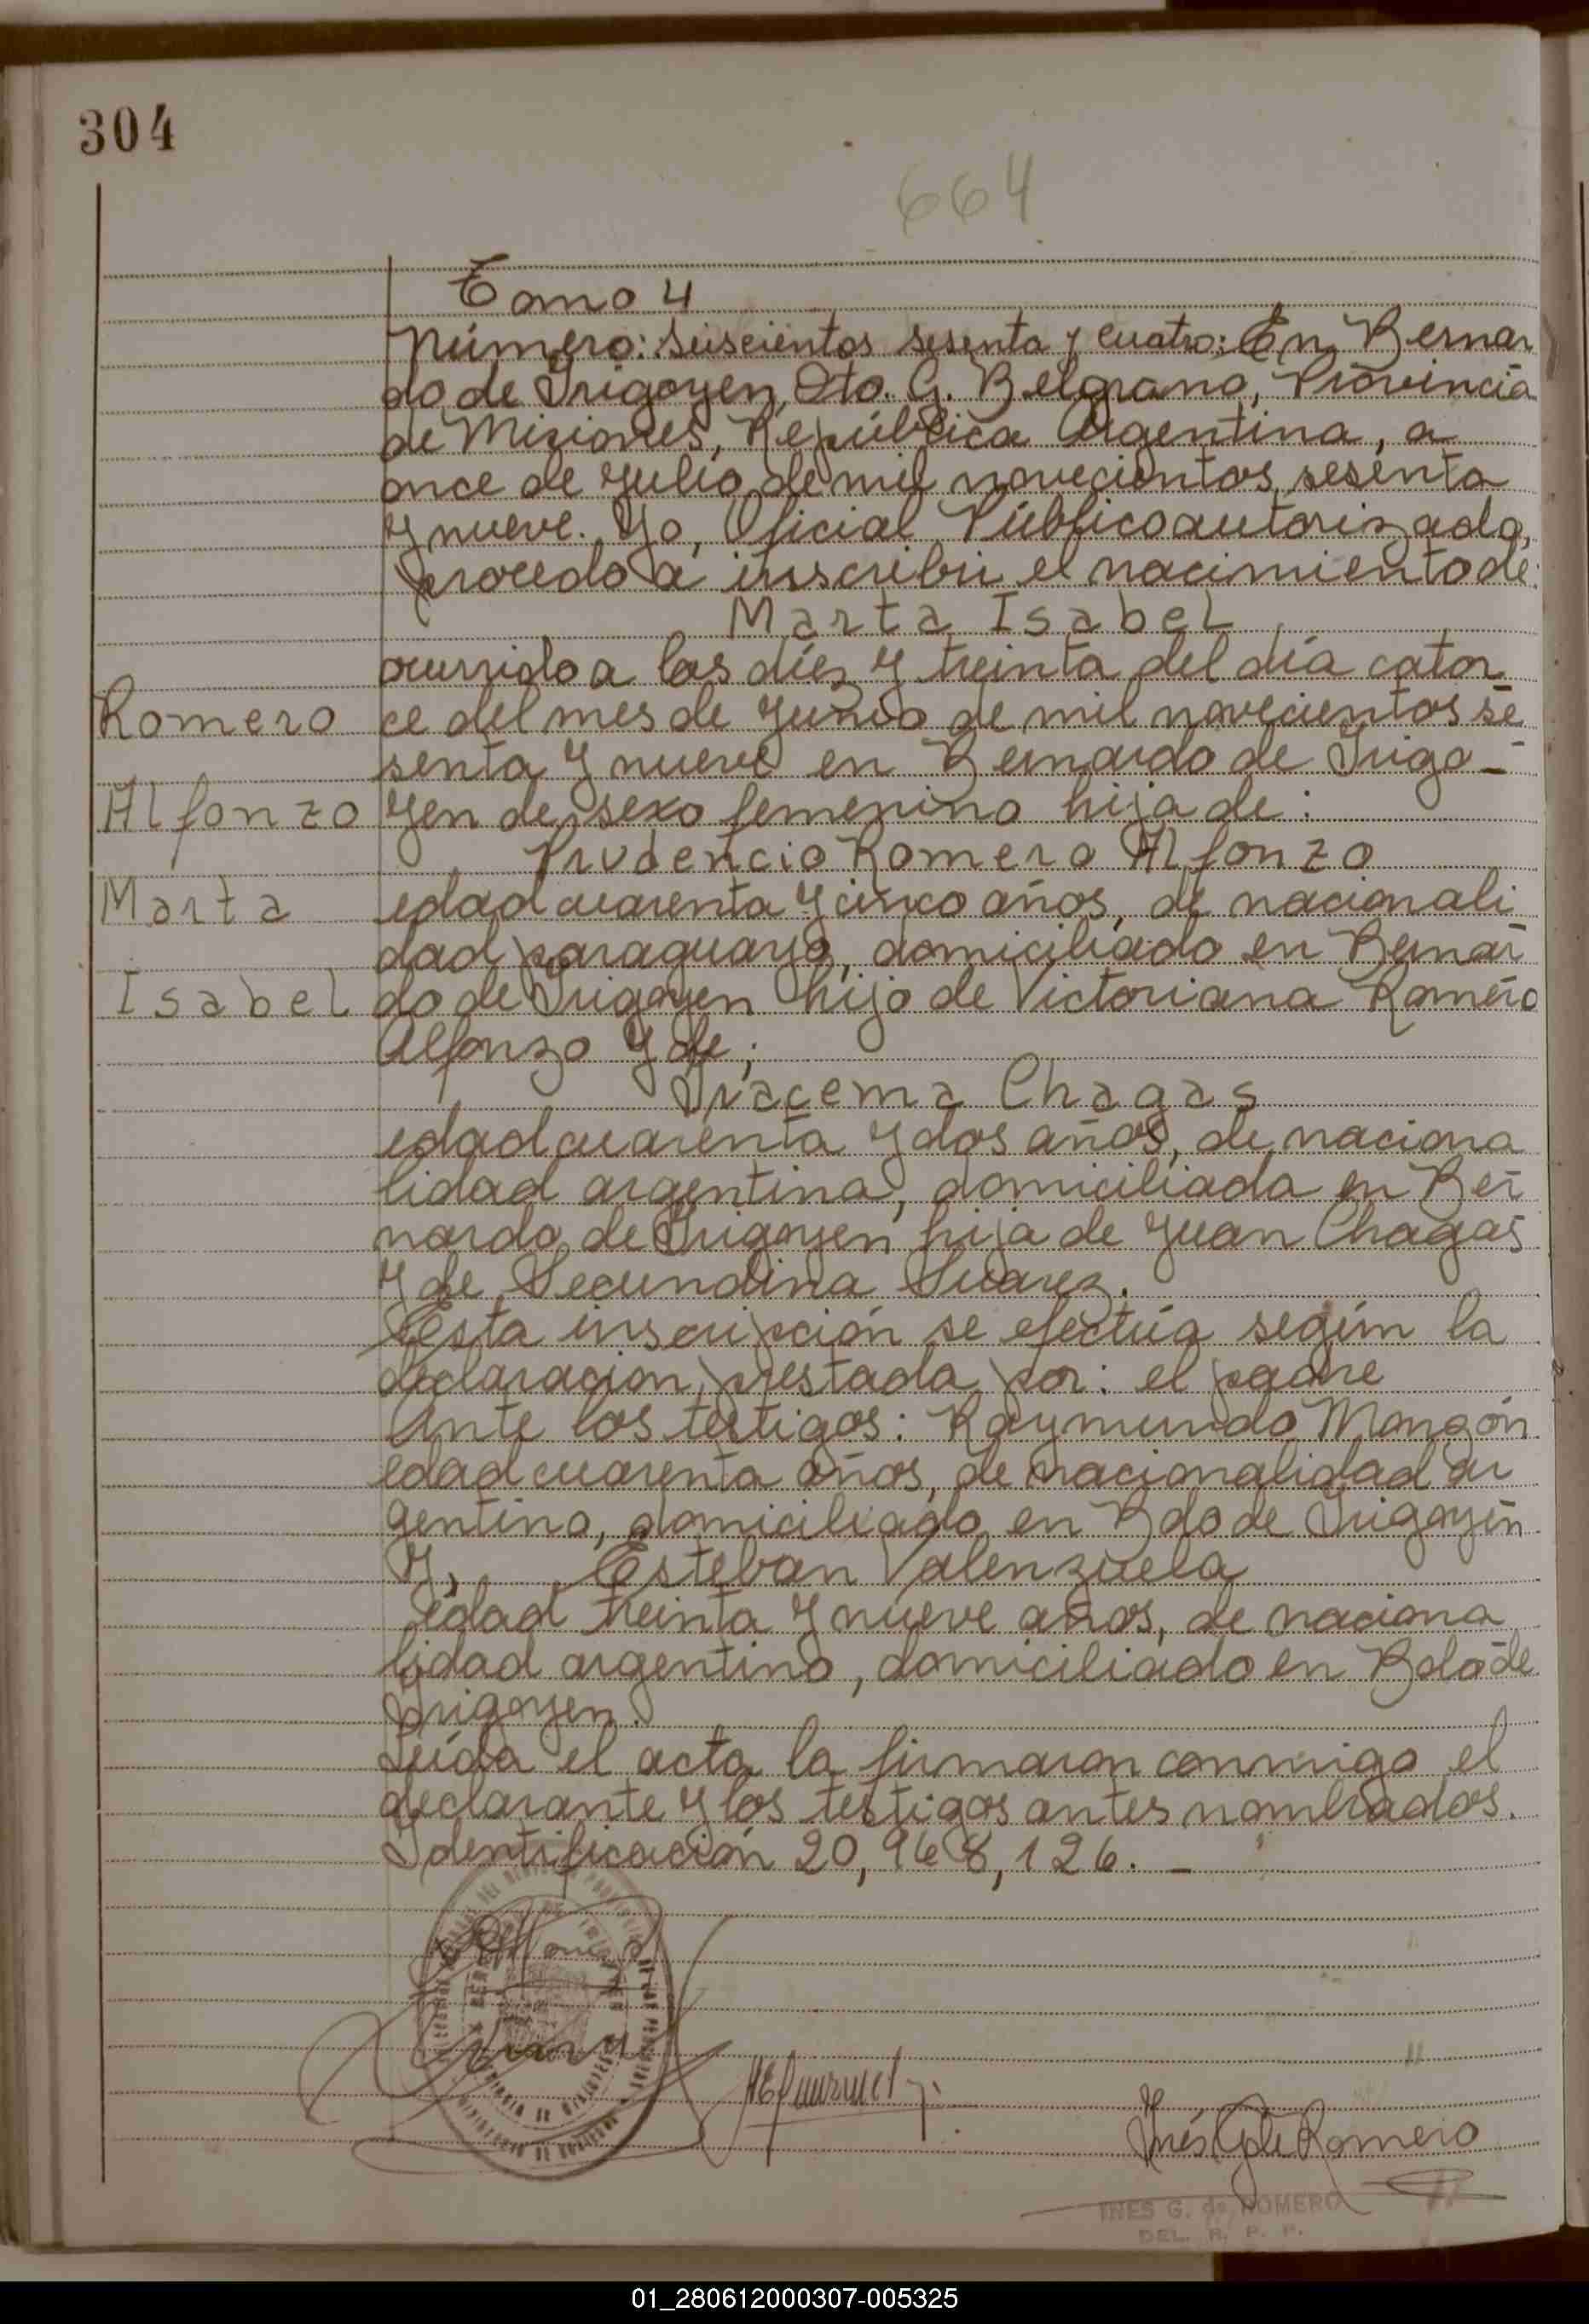 304
664
Tomo 4
Número: seiscientos sesenta y cuatro: En Bernar
do de Irigoyen, Dto. G. Belgrano, Provincia
de Misiones, República Argentina, a
once de Julio de mil novecientos sesenta
y nueve. Yo, Oficial Público autorizado,
procedo a inscribir el nacimiento de:
Marta Isabel
ocurrido a las diez y treinta del día cator
Romero ce del mes de Junio de mil novecientos se
senta y nueve en Bernardo de Irigo-
Alfonzo yen de sexo femenino hija de:
Prudencio Romero Alfonzo
Marta edad cuarenta y cinco años, de nacionali
dad paraguaya, domiciliado en Bernar
Isabel do de Irigoyen hijo de Victoriana Romero
Alfonzo y de;
Iracema Chagas
edad cuarenta y dos años, de naciona
lidad argentina, domiciliada en Ber
nardo de Irigoyen hija de Juan Chagas
y de Secundina Suarez.
Esta inscripción se efectúa según la
declaracion prestada por: el padre
Ante los testigos: Raymundo Monzón
edad cuarenta años, de nacionalidad ar
gentino, domiciliado en Bdo de Irigoyen
Y, Esteban Valenzuela
edad treinta y nueve años, de naciona
lidad argentino, domiciliado en Bdo de
Irigoyen.
Leída el acta la firmaron conmigo el
declarante y los testigos antes nombrados.
Identificación 20,968,126. -
Inés G de Romero
INES G. de ROMERO
DEL. R. P. P.
01_280612000307-005325